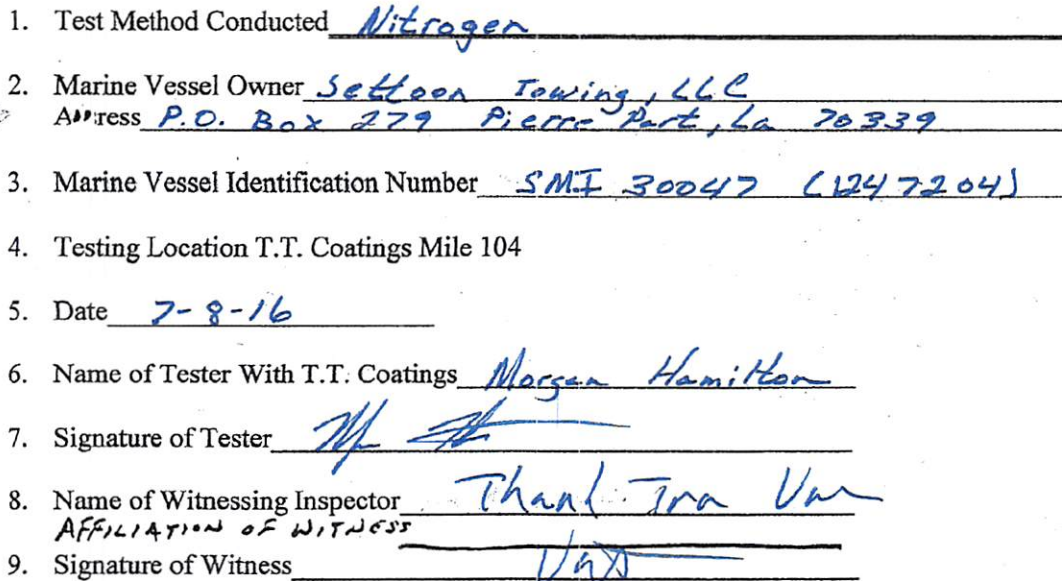 1. Test Method Conducted Nitrogen
2. Marine Vessel Owner Settoon Towing, LLC
Address P.O. Box 279 Pierre Part, La 70339
3. Marine Vessel Identification Number SMI 30047 (1247204)
4. Testing Location T.T. Coatings Mile 104
5. Date 7-8-16
6. Name of Tester With T.T. Coatings Morgan Hamilton
7. Signature of Tester
8. Name of Witnessing Inspector
AFFILIATION OF WITNESS
9. Signature of Witness